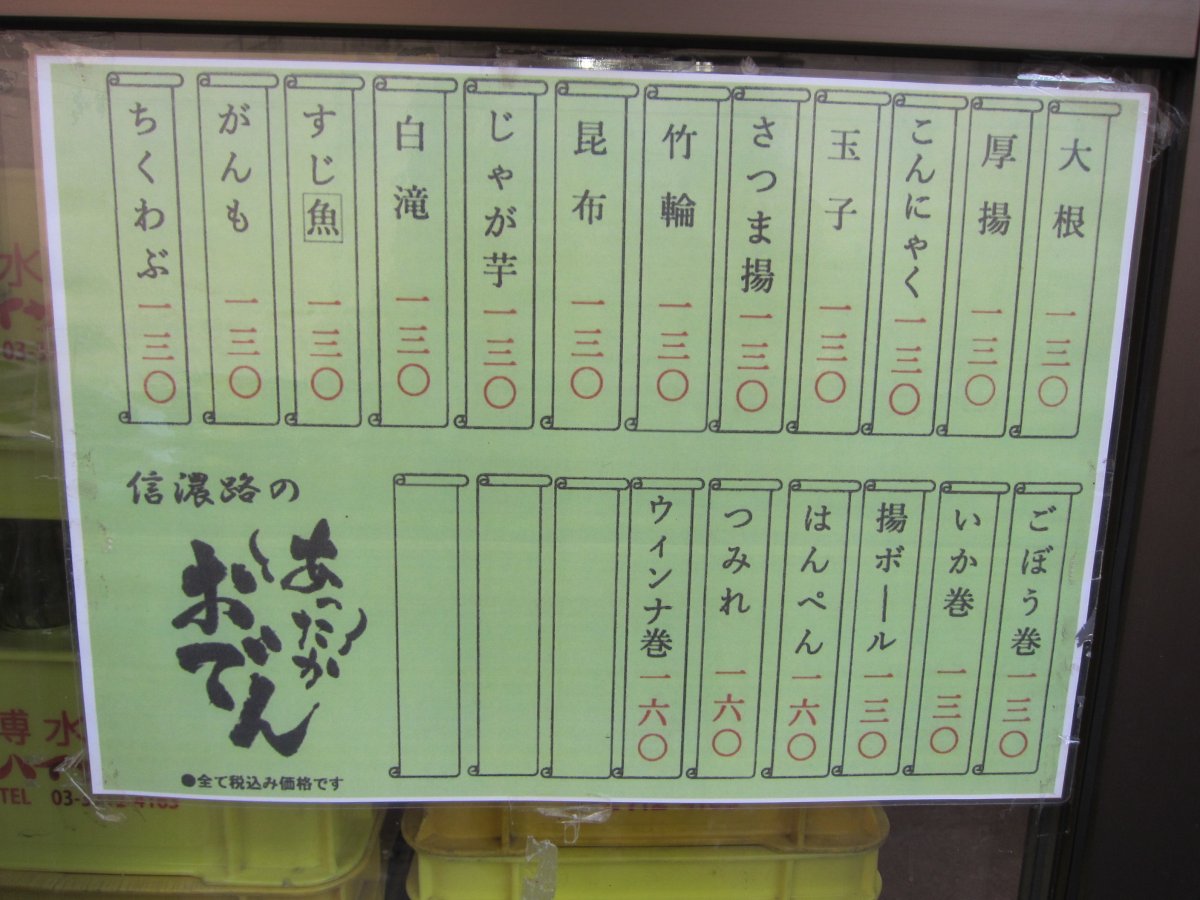 大根 一三〇
厚揚 一三〇
こんにゃく 一三〇
玉子 一三〇
さつま揚 一三〇
竹輪 一三〇
昆布 一三〇
じゃが芋 一三〇
白滝 一三〇
すじ魚 一三〇
がんも 一三〇
ちくわぶ 一三〇
ごぼう巻 一三〇
いか巻 一三〇
揚ボール 一三〇
はんぺん 一六〇
つみれ 一六〇
ウィンナ巻 一六〇
信濃路の
あったか
おでん
●全て税込み価格です
水
03-
博水
TEL